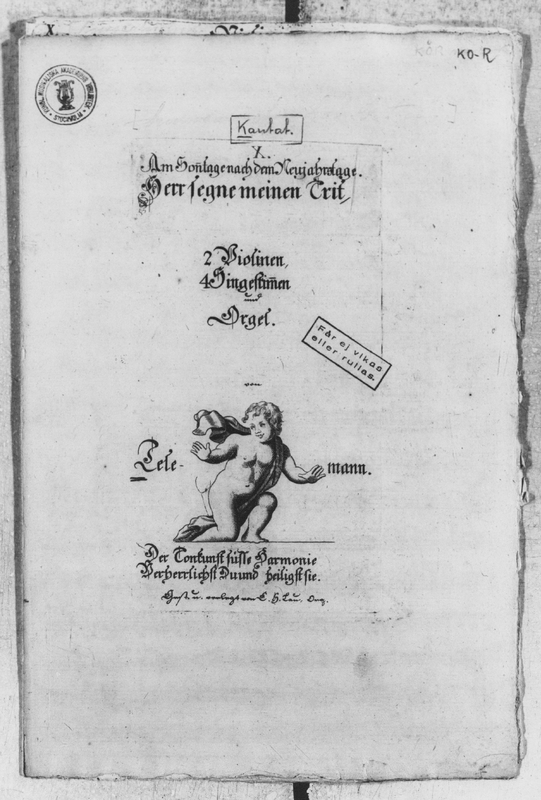 X.
KO-R
Kantat.
X.
Am Soñtage nach dem Neujahrstage.
Herr segne meinen Trit,
2 Violinen,
4 Singestim̃en
und
Orgel.
Får ej vikas
eller rullas.
von
Tele-
mann.
Der Tonkunst süsse Harmonie
Verherrlichst Du und heiligst sie.
Gest. u. verlegt von C. H. Lau.